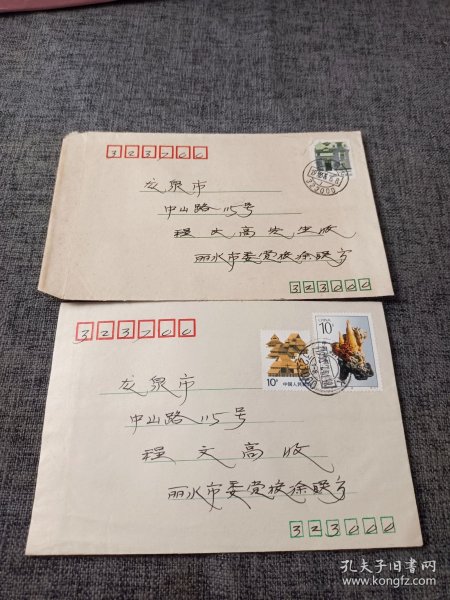 323700
龙泉市
中山路115号
程文高先生收
丽水市委党校徐
323000
323700
10分
CHINA
10
中国人民邮政
龙泉市
中山路115号
程文高收
丽水市委党校徐
323000
孔夫子旧书网
www.kongfz.com